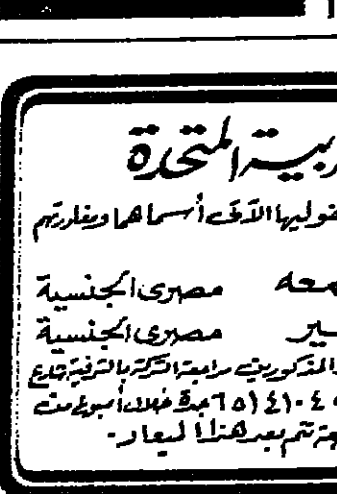 ربية المتحدة
فوليها الآتى أسماهما ومغادرتهم
معه مصرى الجنسية
سير مصرى الجنسية
المذكورين مراجعة الشركة بالشرفية شارع
٦٥١٤١٠٤ جدة خلال أسبوع من
تم بعد هذا الميعاد.